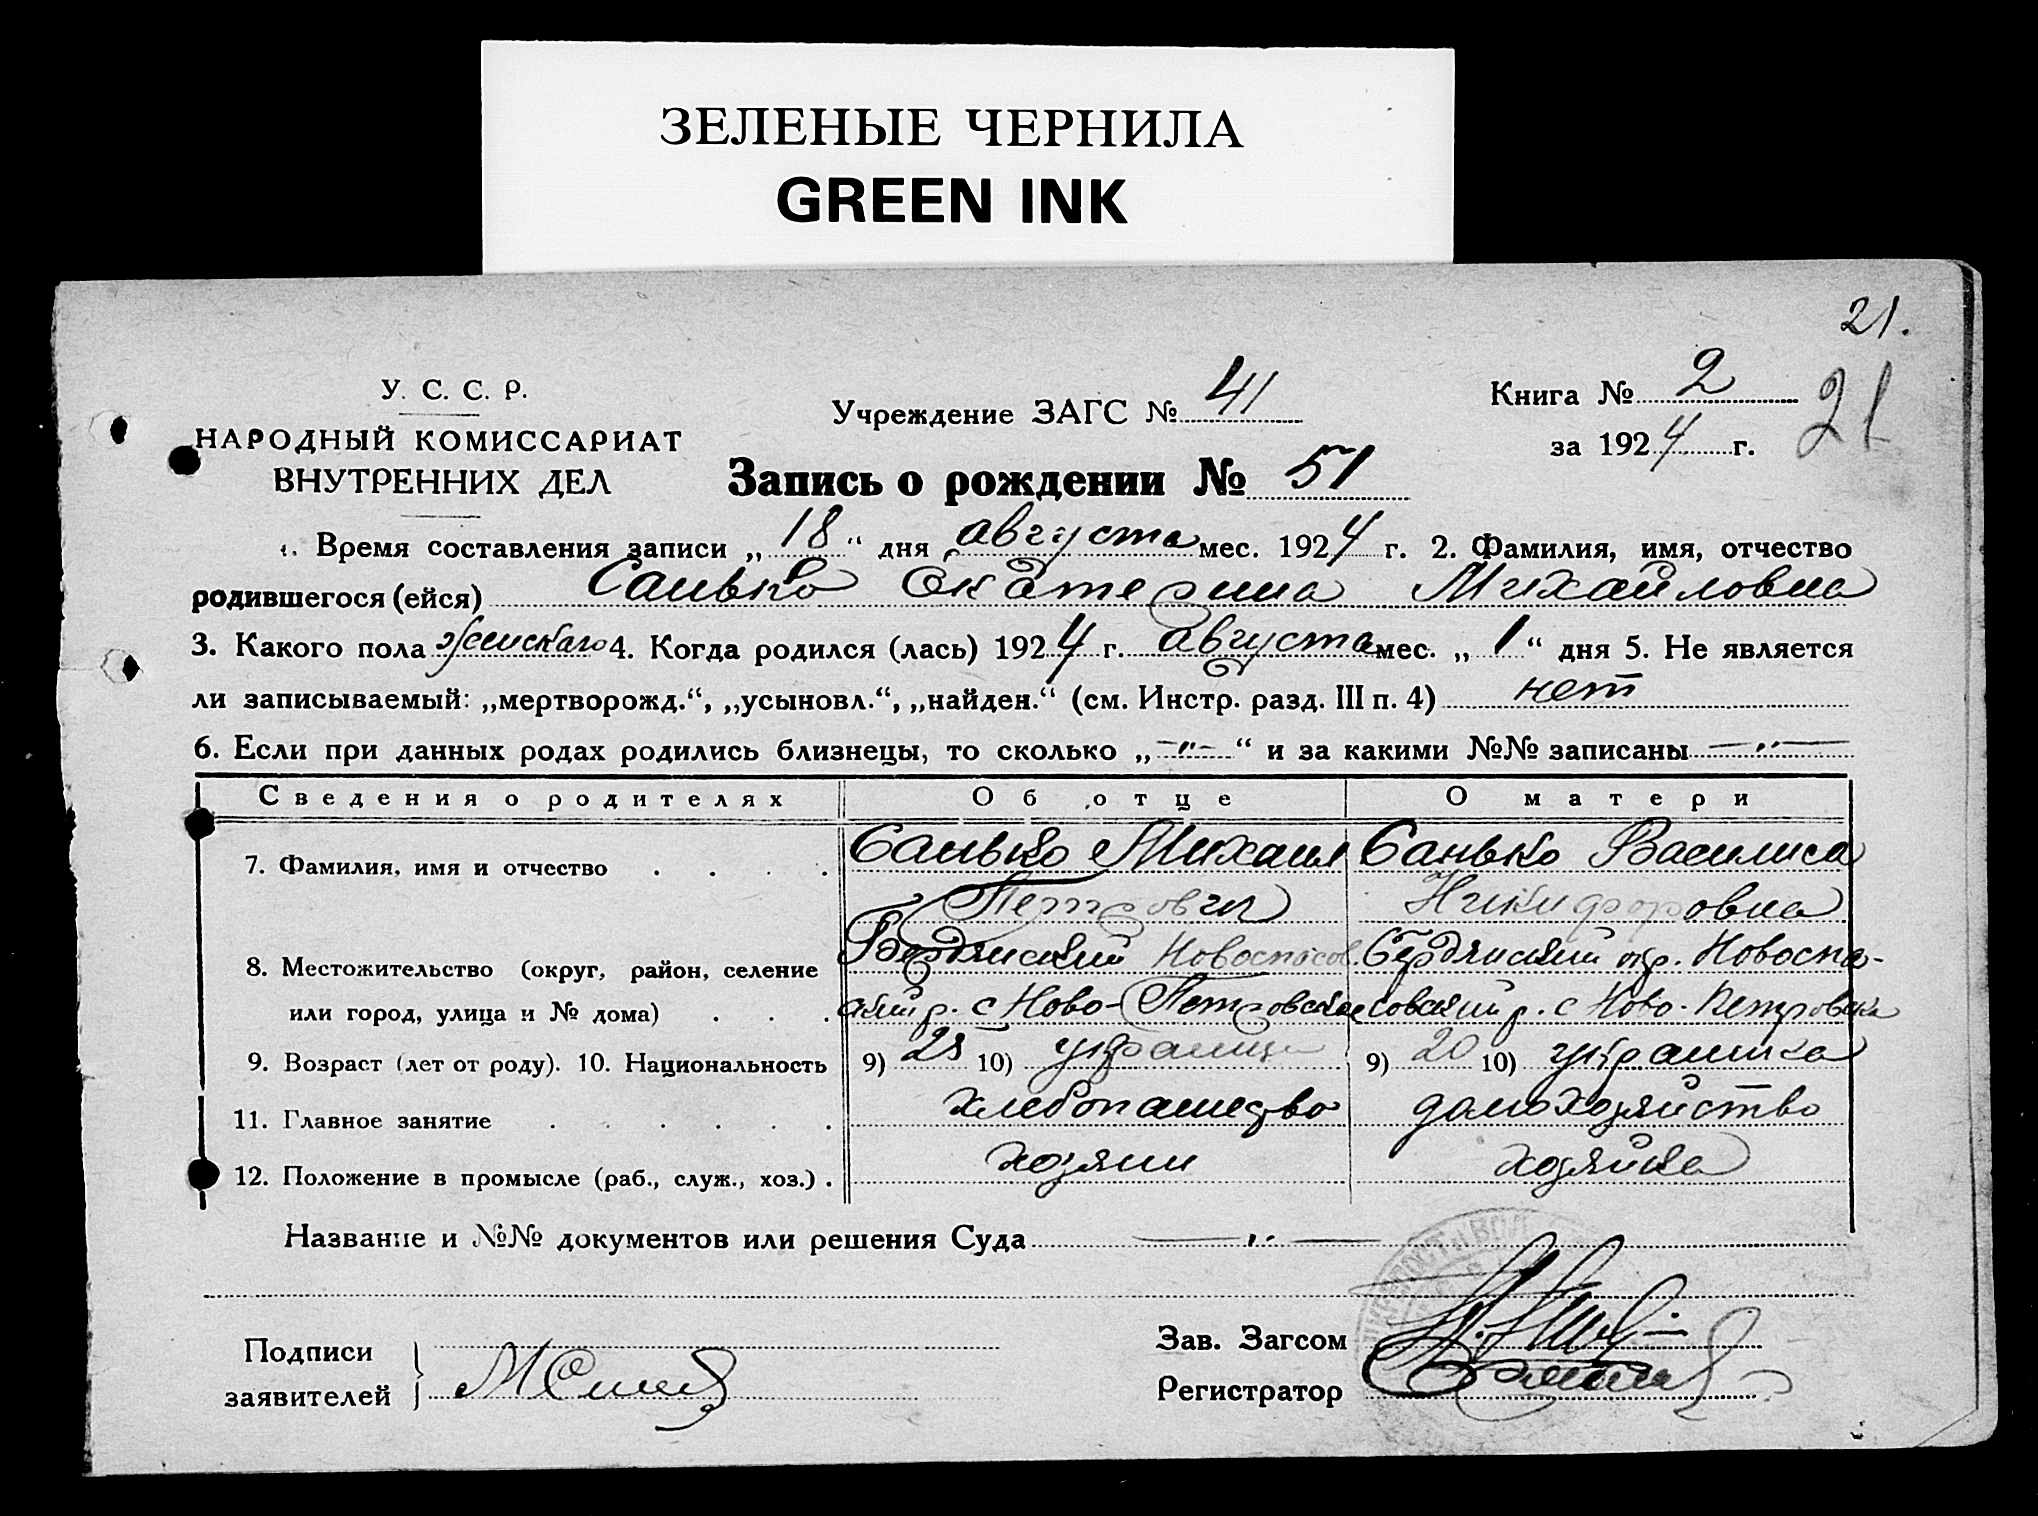 ЗЕЛЕНЫЕ ЧЕРНИЛА
GREEN INK
21.
21
У. С. С. Р.
НАРОДНЫЙ КОМИССАРИАТ
ВНУТРЕННИХ ДЕЛ
Учреждение ЗАГС № 41
Книга № 2
за 1924 г.
Запись о рождении № 51
1. Время составления записи „ 18 “ дня августа мес. 1924 г. 2. Фамилия, имя, отчество
родившегося (ейся) Санько Екатерина Михайловна
3. Какого пола женскаго 4. Когда родился (лась) 1924 г. августа мес. „ 1 “ дня 5. Не является
ли записываемый: „мертворожд.“, „усыновл.“, „найден.“ (см. Инстр. разд. III п. 4) нет
6. Если при данных родах родились близнецы, то сколько „ -"- “ и за какими №№ записаны -"-
Сведения о родителях Об отце О матери
7. Фамилия, имя и отчество . . . . Санько Михаил Санько Василиса
Петрович Никифоровна
8. Местожительство (округ, район, селение Бердянский Новоспасов. Бердянский окр. Новоспа-
или город, улица и № дома) . . . ский р. с Ново-Петровская совский р. с Ново-Петровка
9. Возраст (лет от роду). 10. Национальность 9) 28 10) украинец 9) 20 10) украинка
11. Главное занятие . . . . . . хлебопашество домохозяйство
12. Положение в промысле (раб., служ., хоз.) . хозяин хозяйка
Название и №№ документов или решения Суда -"-
Подписи
заявителей
Зав. Загсом
Регистратор